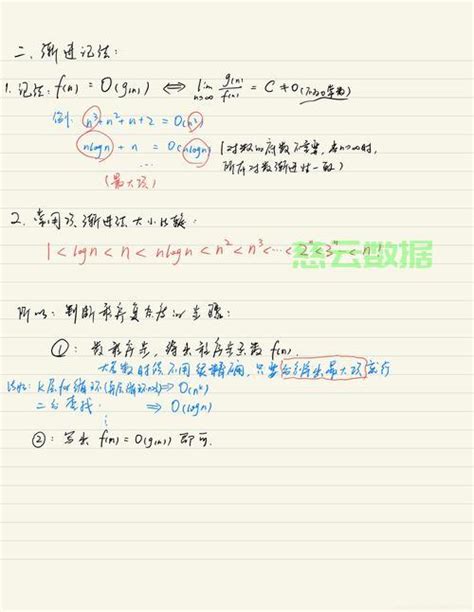 二、渐进记法:
1. 记法: f(n) = O(g(n)) ⟺ lim n→∞ g(n)/f(n) = C ≠ 0 (不为0常数)
例: n³+n²+n+2 = O(n³)
nlogn + n = O(nlogn) (对数的底数不重要, 在n→∞时,
... 所有对数渐进性一致)
(最大项)
2. 常用项渐进法大小比较:
1 < logn < n < nlogn < n² < n³ < … < 2ⁿ < 3ⁿ … < n!
慈云数据
所以: 判断程序复杂度的步骤:
①: 数程序步, 得出程序步函数 f(n).
大多数时候不用很精确, 只要分析出最大项运行
比如: K层for循环(每层循环n次) ⇒ O(nᵏ)
二分查找: ⇒ O(logn)
⋮
②: 写出 f(n) = O(g(n)) 即可.